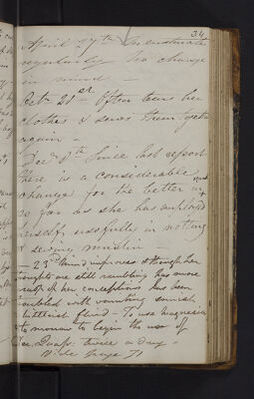 34
April 27th Menstruates
regularly No change
in mind —
Octr 21st — Often tears her
clothes & sews them
again —
Decr 8th Since last report
there is a considerable
change for the better in
so far as she has employed
herself usefully in
& sewing muslin —
— 23rd Mind improves although her
thoughts are still rambling has more
of her conceptions has been
troubled with vomiting
bitterish fluid — To use magnesia
tomorrow to begin the use of
Quass: twice a day —
Vide page 71